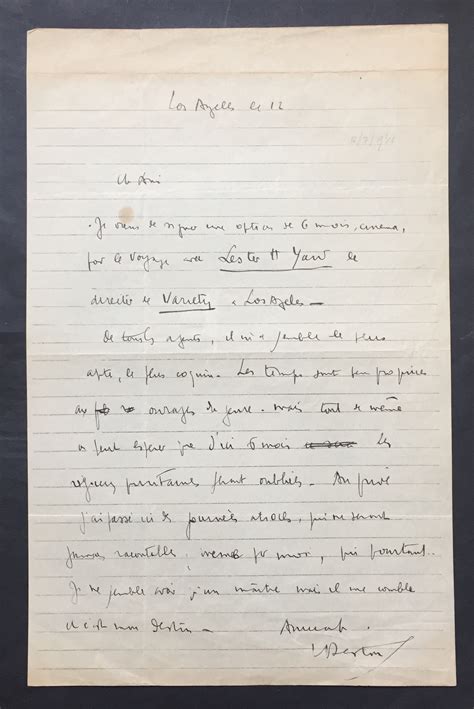 Los Angeles le 12
Ch Ami
Je viens de signer une option de 6 mois, cinéma,
pour le Voyage avec Lester H Yard le
directeur de Variety à Los Angeles —
De tous les agents, il m'a semblé le plus
apte, le plus coquin. Les temps sont peu propices
au ouvrages de genre. mais tout de même
on peut espérer que d'ici 6 mois les
rigueurs puritaines seront oubliées. Au privé
j'ai passé ici des journées atroces, qui ne seront
jamais racontables, même par moi, qui pourtant..
Je ne semble avoir qu'un maître mais il me comble
et c'est mon Destin — Amicalt.
LF